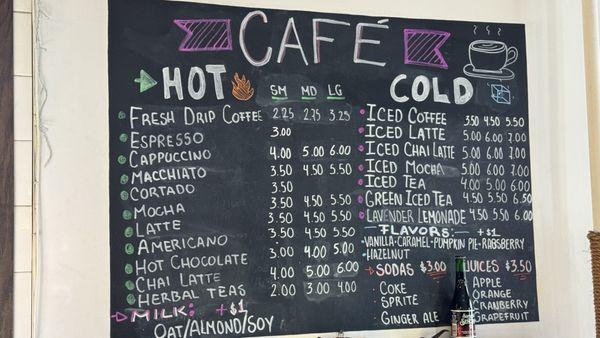 CAFÉ
HOT
SM MD LG
FRESH DRIP COFFEE 2.25 2.75 3.25
ESPRESSO 3.00
CAPPUCCINO 4.00 5.00 6.00
MACCHIATO 3.50 4.50 5.50
CORTADO 3.50
MOCHA 3.50 4.50 5.50
LATTE 3.50 4.50 5.50
AMERICANO 3.50 4.50 5.50
HOT CHOCOLATE 3.00 4.00 5.00
CHAI LATTE 4.00 5.00 6.00
HERBAL TEAS 2.00 3.00 4.00
MILK: +$1
OAT/ALMOND/SOY
COLD
ICED COFFEE 3.50 4.50 5.50
ICED LATTE 5.00 6.00 7.00
ICED CHAI LATTE 5.00 6.00 7.00
ICED MOCHA 5.00 6.00 7.00
ICED TEA 4.00 5.00 6.00
GREEN ICED TEA 4.50 5.50 6.50
LAVENDER LEMONADE 4.50 5.50 6.00
FLAVORS: +$1
VANILLA-CARAMEL-PUMPKIN PIE-RASBERRY
HAZELNUT
SODAS $3.00
COKE
SPRITE
GINGER ALE
JUICES $3.50
APPLE
ORANGE
CRANBERRY
GRAPEFRUIT